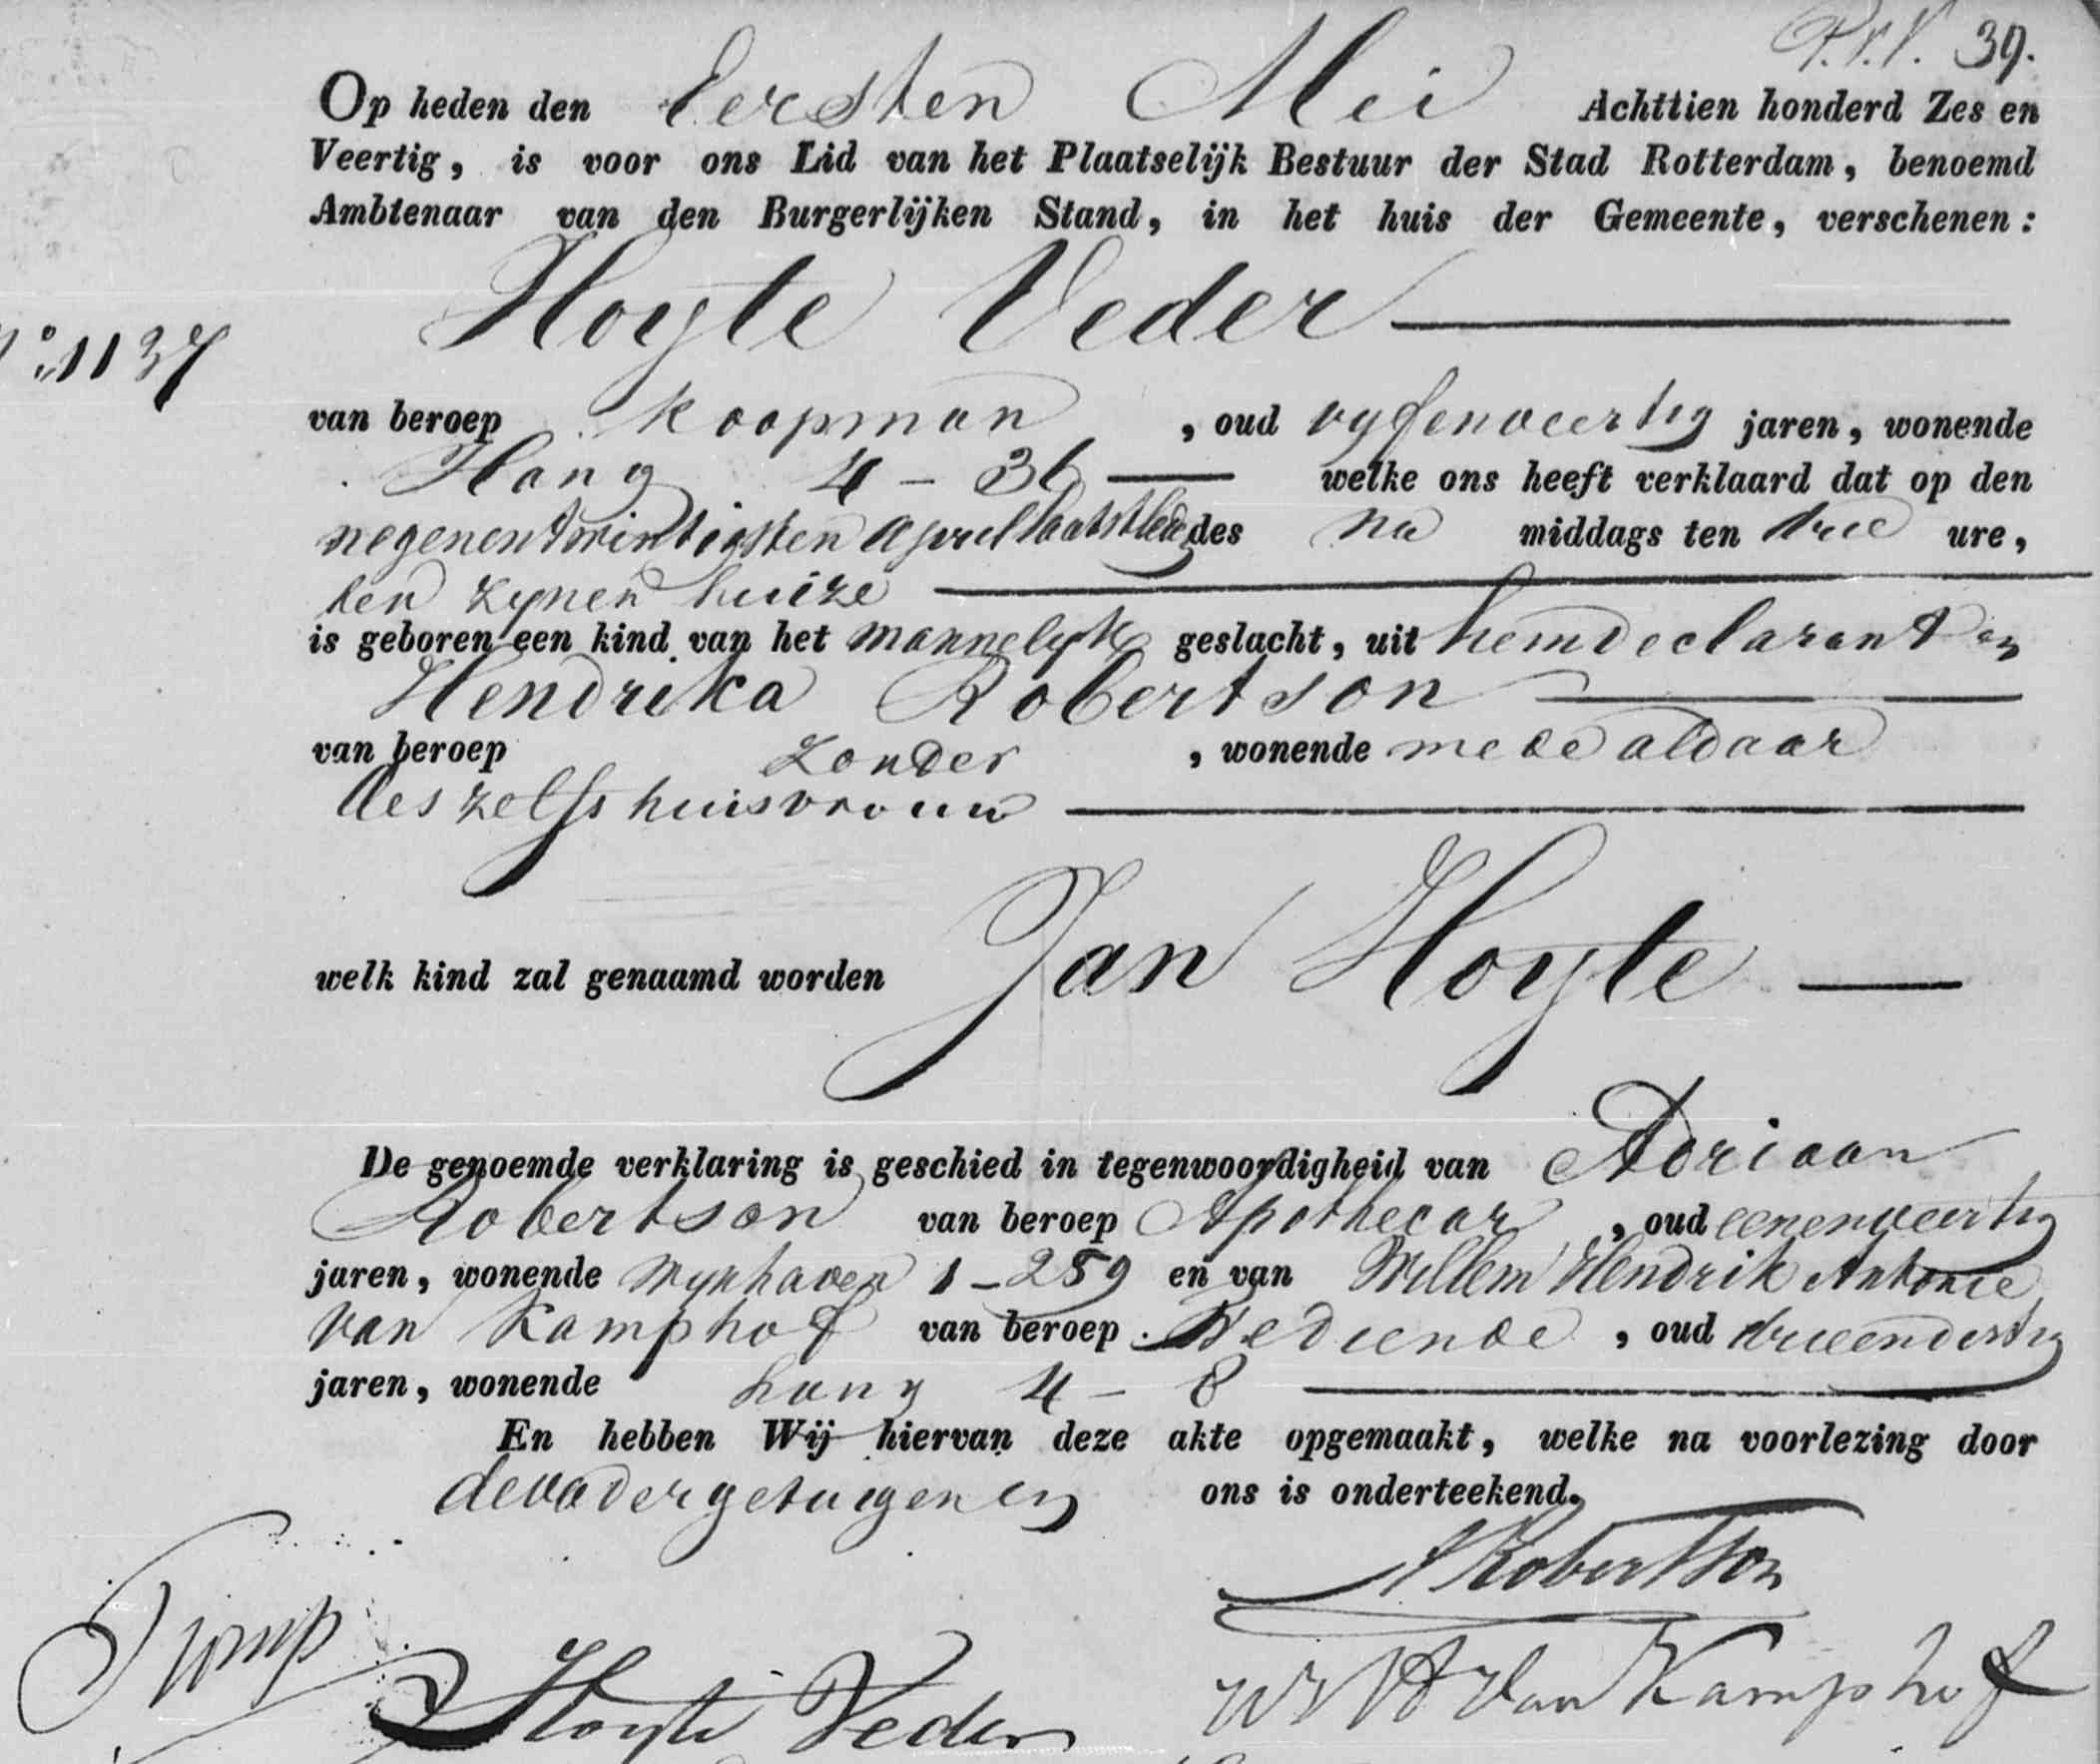 39.
Op heden den Eersten Mei Achttien honderd Zes en
Veertig, is voor ons Lid van het Plaatselijk Bestuur der Stad Rotterdam, benoemd
Ambtenaar van den Burgerlijken Stand, in het huis der Gemeente, verschenen:
Hoyte Veder
No. 1137
van beroep Koopman, oud vyfenveertig jaren, wonende
Hang 4 - 36 welke ons heeft verklaard dat op den
negenentwintigsten April laatstleden des na middags ten drie ure,
ten zynen huize
is geboren een kind van het mannelyk geslacht, uit hem declarant en
Hendrika Robertson
van beroep zonder, wonende mede aldaar
deszelfs huisvrouw
welk kind zal genaamd worden Jan Hoyte
De genoemde verklaring is geschied in tegenwoordigheid van Adriaan
Robertson van beroep Apothecar, oud eenenveertig
jaren, wonende Wynhaven 1-289 en van Willem Hendrik Antonie
van Kamphof van beroep Bediende, oud drieendertig
jaren, wonende hang 4 - 8
En hebben Wij hiervan deze akte opgemaakt, welke na voorlezing door
de vader getuigen en ons is onderteekend.
A Robertson
Hoyte Veder
W H A van Kamphof